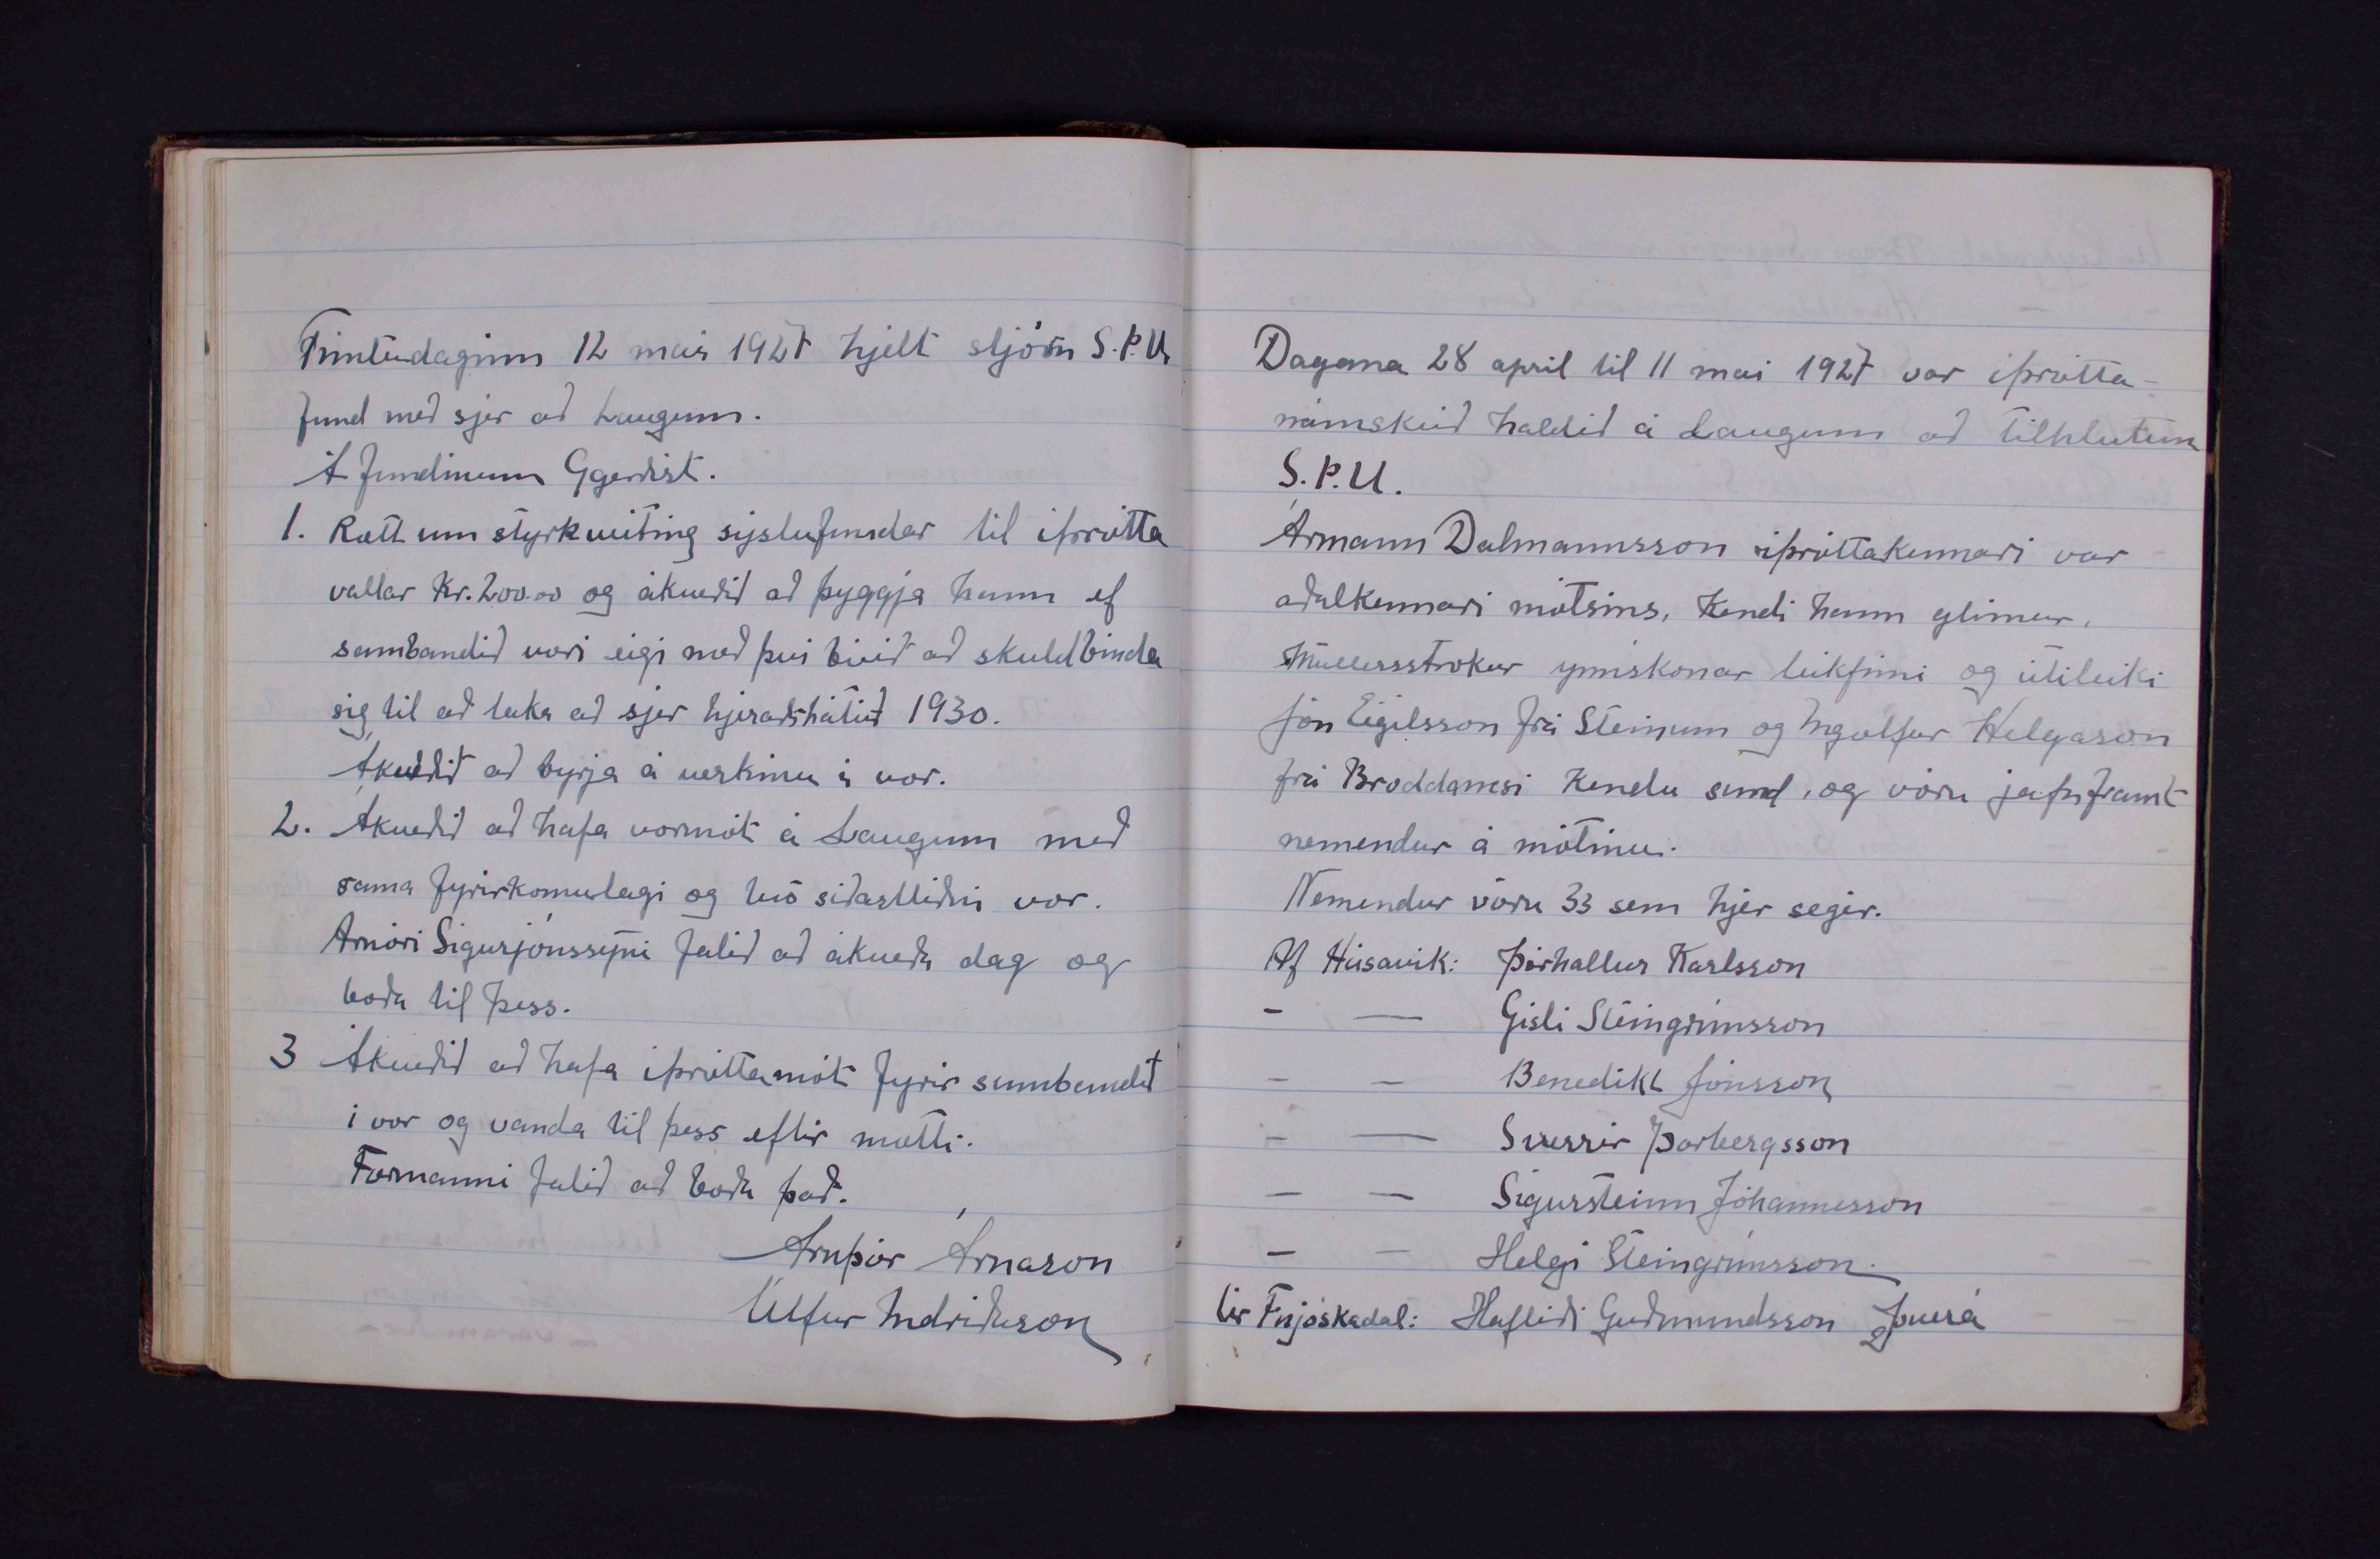 Fimtudaginn 12 maí 1927 hjelt stjórn S.Þ.U.
fund með sjer að Laugum.
Á fundinum Ggerðist.
1. Rætt um styrkveiting sýslufundar til íþrótta
vallar Kr. 200.00 og ákveðið að þyggja hann ef
sambandið væri eigi með því búið að skuldbinda
sig til að taka að sjer hjeraðshátíð 1930.
Ákveðið að byrja á verkinu í vor.
2. Ákveðið að hafa vormót á Laugum með
sama fyrirkomulagi og tvö síðastliðin vor.
Arnóri Sigurjónssyni falið að ákveða dag og
boða til þess.
3 Ákveðið að hafa íþróttamót fyrir sambandið
í vor og vanda til þess eftir mætti.
Formanni falið að boða það.
Arnþór Árnason
Úlfur Indriðason
Dagana 28 apríl til 11 maí 1927 var íþrótta-
námskeið haldið á Laugum að tilhlutun
S.Þ.U.
Ármann Dalmannsson íþróttakennari var
aðalkennari mótsins. Kendi hann glímur,
Müllersstrokur ýmiskonar leikfimi og útileiki
Jón Eigilsson frá Steinum og Ingólfur Helgason
frá Broddanesi Kendu sund, og vóru jafnframt
nemendur á mótinu.
Nemendur vóru 33 sem hjer segir.
Af Húsavík: Þórhallur Karlsson
- — Gísli Steingrímsson
- — Benedikt Jónsson
- — Sverrir Þorbergsson
- — Sigursteinn Jóhannesson
- — Helgi Steingrímsson.
Úr Fnjóskadal: Hafliði Guðmundsson Þverá